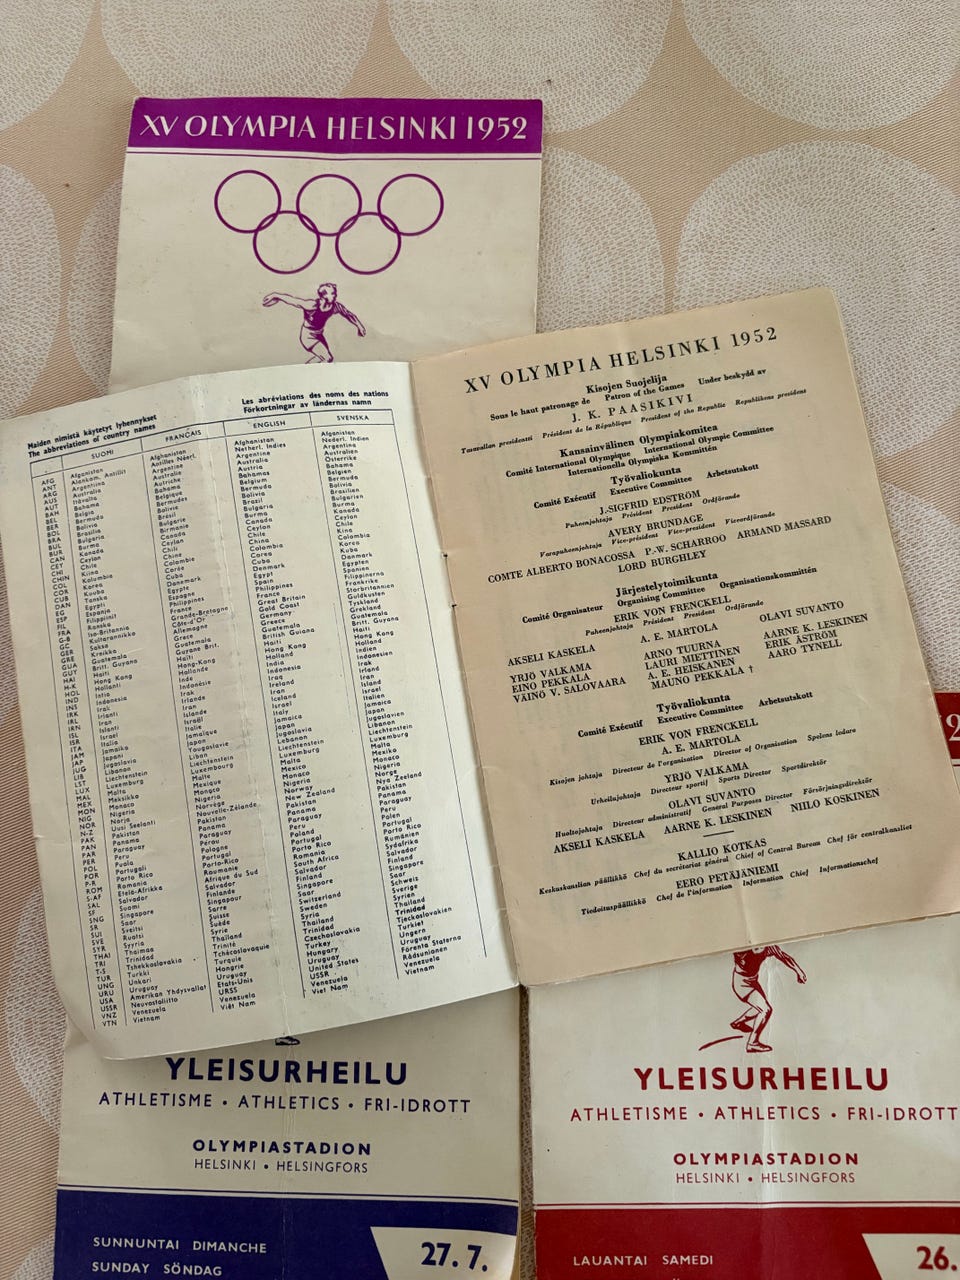 XV OLYMPIA HELSINKI 1952
Maiden nimistä käytetyt lyhennykset
The abbreviations of country names
Les abréviations des noms des nations
Förkortningar av ländernas namn
SUOMI FRANÇAIS ENGLISH SVENSKA
AFG Afganistan Afghanistan Afghanistan Afghanistan
ANT Alankom. Antillit Antilles Néerl. Netherl. Indies Nederl. Indien
ARG Argentiina Argentine Argentina Argentina
AUS Australia Australie Australia Australien
AUT Itävalta Autriche Austria Österrike
BAM Bahama Bahama Bahamas Bahama
BEL Belgia Belgique Belgium Belgien
BER Bermuda Bermudes Bermuda Bermuda
BOL Bolivia Bolivie Bolivia Bolivia
BRA Brasilia Brésil Brazil Brasilien
BUL Bulgaria Bulgarie Bulgaria Bulgarien
BUR Burma Birmanie Burma Burma
CAN Kanada Canada Canada Canada
CEY Ceylon Ceylan Ceylon Ceylon
CHI Chile Chili Chile Chile
CHIN Kiina Chine China Kina
COL Kolumbia Colombie Colombia Colombia
COR Korea Corée Corea Korea
CUB Kuuba Cuba Cuba Kuba
DAN Tanska Danemark Denmark Danmark
EG Egypti Egypte Egypt Egypten
ESP Espanja Espagne Spain Spanien
FIL Filippiinit Philippines Philippines Filippinerna
FRA Ranska France France Frankrike
G-B Iso-Britannia Grande-Bretagne Great Britain Storbritannien
GC Kultarannikko Côte-d'Or Gold Coast Guldkusten
GER Saksa Allemagne Germany Tyskland
GRE Kreikka Grece Greece Grekland
GUA Guatemala Guatemala Guatemala Guatemala
GUY Britt. Guyana Guyane Brit. British Guiana Britt. Guyana
HAI Haiti Haiti Haiti Haiti
H-K Hong Kong Hong-Kong Hong Kong Hong Kong
HOL Hollanti Hollande Holland Holland
IND Intia Inde India Indien
INS Indonesia Indonésie Indonesia Indonesien
IRK Irak Irak Iraq Irak
IRL Irlanti Irlande Ireland Irland
IRN Iran Iran Iran Iran
ISL Islanti Islande Iceland Island
ISR Israel Israël Israel Israel
ITA Italia Italie Italy Italien
JAM Jamaika Jamaïque Jamaica Jamaica
JAP Japani Japon Japan Japan
JUG Jugoslavia Yougoslavie Jugoslavia Jugoslavien
LIB Libanon Liban Lebanon Libanon
LST Liechtenstein Liechtenstein Liechtenstein Liechtenstein
LUX Luxemburg Luxembourg Luxemburg Luxemburg
MAL Malta Malte Malta Malta
MEX Meksikko Mexique Mexico Mexiko
MON Monaco Monaco Monaco Monaco
NIG Nigeria Nigeria Nigeria Nigeria
NOR Norja Norvège Norway Norge
N-Z Uusi Seelanti Nouvelle-Zélande New Zealand Nya Zeeland
PAK Pakistan Pakistan Pakistan Pakistan
PAN Panama Panama Panama Panama
PAR Paraguay Paraguay Paraguay Paraguay
PER Peru Pérou Peru Peru
POL Puola Pologne Poland Polen
POR Portugali Portugal Portugal Portugal
P-R Porto Rico Porto-Rico Porto Rico Porto Rico
ROM Romania Roumanie Romania Rumänien
S-AF Etelä-Afrikka Afrique du Sud South Africa Sydafrika
SAL Salvador Salvador Salvador Salvador
SF Suomi Finlande Finland Finland
SNG Singapore Singapour Singapore Singapore
SR Saar Sarre Saar Saar
SUI Sveitsi Suisse Switzerland Schweiz
SVE Ruotsi Suède Sweden Sverige
SYR Syyria Syrie Syria Syrien
THAI Thaimaa Thaïland Thailand Thailand
TRI Trinidad Trinité Trinidad Trinidad
T-S Tshekkoslovakia Tchécoslovaquie Czechoslovakia Tjeckoslovakien
TUR Turkki Turquie Turkey Turkiet
UNG Unkari Hongrie Hungary Ungern
URU Uruguay Uruguay Uruguay Uruguay
USA Amerikan Yhdysvallat Etats-Unis United States Förenta Staterna
USSR Neuvostoliitto URSS USSR Rådsunionen
VNZ Venezuela Venezuela Venezuela Venezuela
VTN Vietnam Viêt Nam Viet Nam Vietnam
XV OLYMPIA HELSINKI 1952
Kisojen Suojelija
Sous le haut patronage de Patron of the Games Under beskydd av
J. K. PAASIKIVI
Tasavallan presidentti Président de la République President of the Republic Republikens president
Kansainvälinen Olympiakomitea
Comité International Olympique International Olympic Committee
Internationella Olympiska Kommittén
Työvaliokunta
Comité Exécutif Executive Committee Arbetsutskott
J.-SIGFRID EDSTRÖM
Puheenjohtaja Président President Ordförande
AVERY BRUNDAGE
Varapuheenjohtaja Vice-président Vice-president Viceordförande
COMTE ALBERTO BONACOSSA P.-W. SCHARROO ARMAND MASSARD
LORD BURGHLEY
Järjestelytoimikunta
Comité Organisateur Organising Committee Organisationskommittén
ERIK VON FRENCKELL
Puheenjohtaja Président President Ordförande
AKSELI KASKELA A. E. MARTOLA OLAVI SUVANTO
YRJÖ VALKAMA ARNO TUURNA AARNE K. LESKINEN
EINO PEKKALA LAURI MIETTINEN ERIK ÅSTRÖM
VÄINÖ V. SALOVAARA A. E. HEISKANEN AARO TYNELL
MAUNO PEKKALA †
Työvaliokunta
Comité Exécutif Executive Committee Arbetsutskott
ERIK VON FRENCKELL
A. E. MARTOLA
Kisojen johtaja Directeur de l'organisation Director of Organisation Spelens ledare
YRJÖ VALKAMA
Urheilujohtaja Directeur sportif Sports Director Sportdirektör
OLAVI SUVANTO
Huoltojohtaja Directeur administratif General Purposes Director Försörjningsdirektör
AKSELI KASKELA AARNE K. LESKINEN NIILO KOSKINEN
KALLIO KOTKAS
Keskuskanslian päällikkö Chef du secrétariat général Chief of Central Bureau Chef för centralkansliet
EERO PETÄJÄNIEMI
Tiedoituspäällikkö Chef de l'information Information Chief Informationschef
2
YLEISURHEILU
ATHLETISME • ATHLETICS • FRI-IDROTT
OLYMPIASTADION
HELSINKI • HELSINGFORS
SUNNUNTAI DIMANCHE
SUNDAY SÖNDAG
27. 7.
YLEISURHEILU
ATHLETISME • ATHLETICS • FRI-IDROTT
OLYMPIASTADION
HELSINKI • HELSINGFORS
LAUANTAI SAMEDI
26.